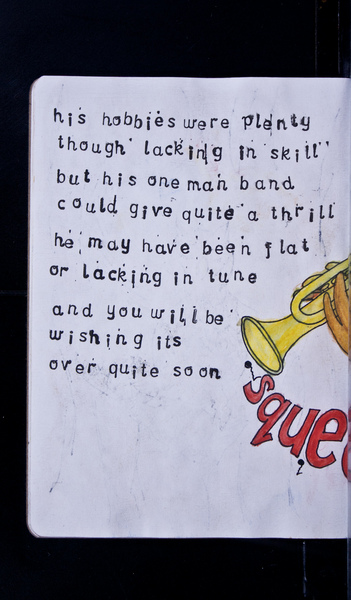 his hobbies were plenty
though lacking in skill
but his one man band
could give quite a thrill
he may have been flat
or lacking in tune
and you will be
wishing its
over quite soon